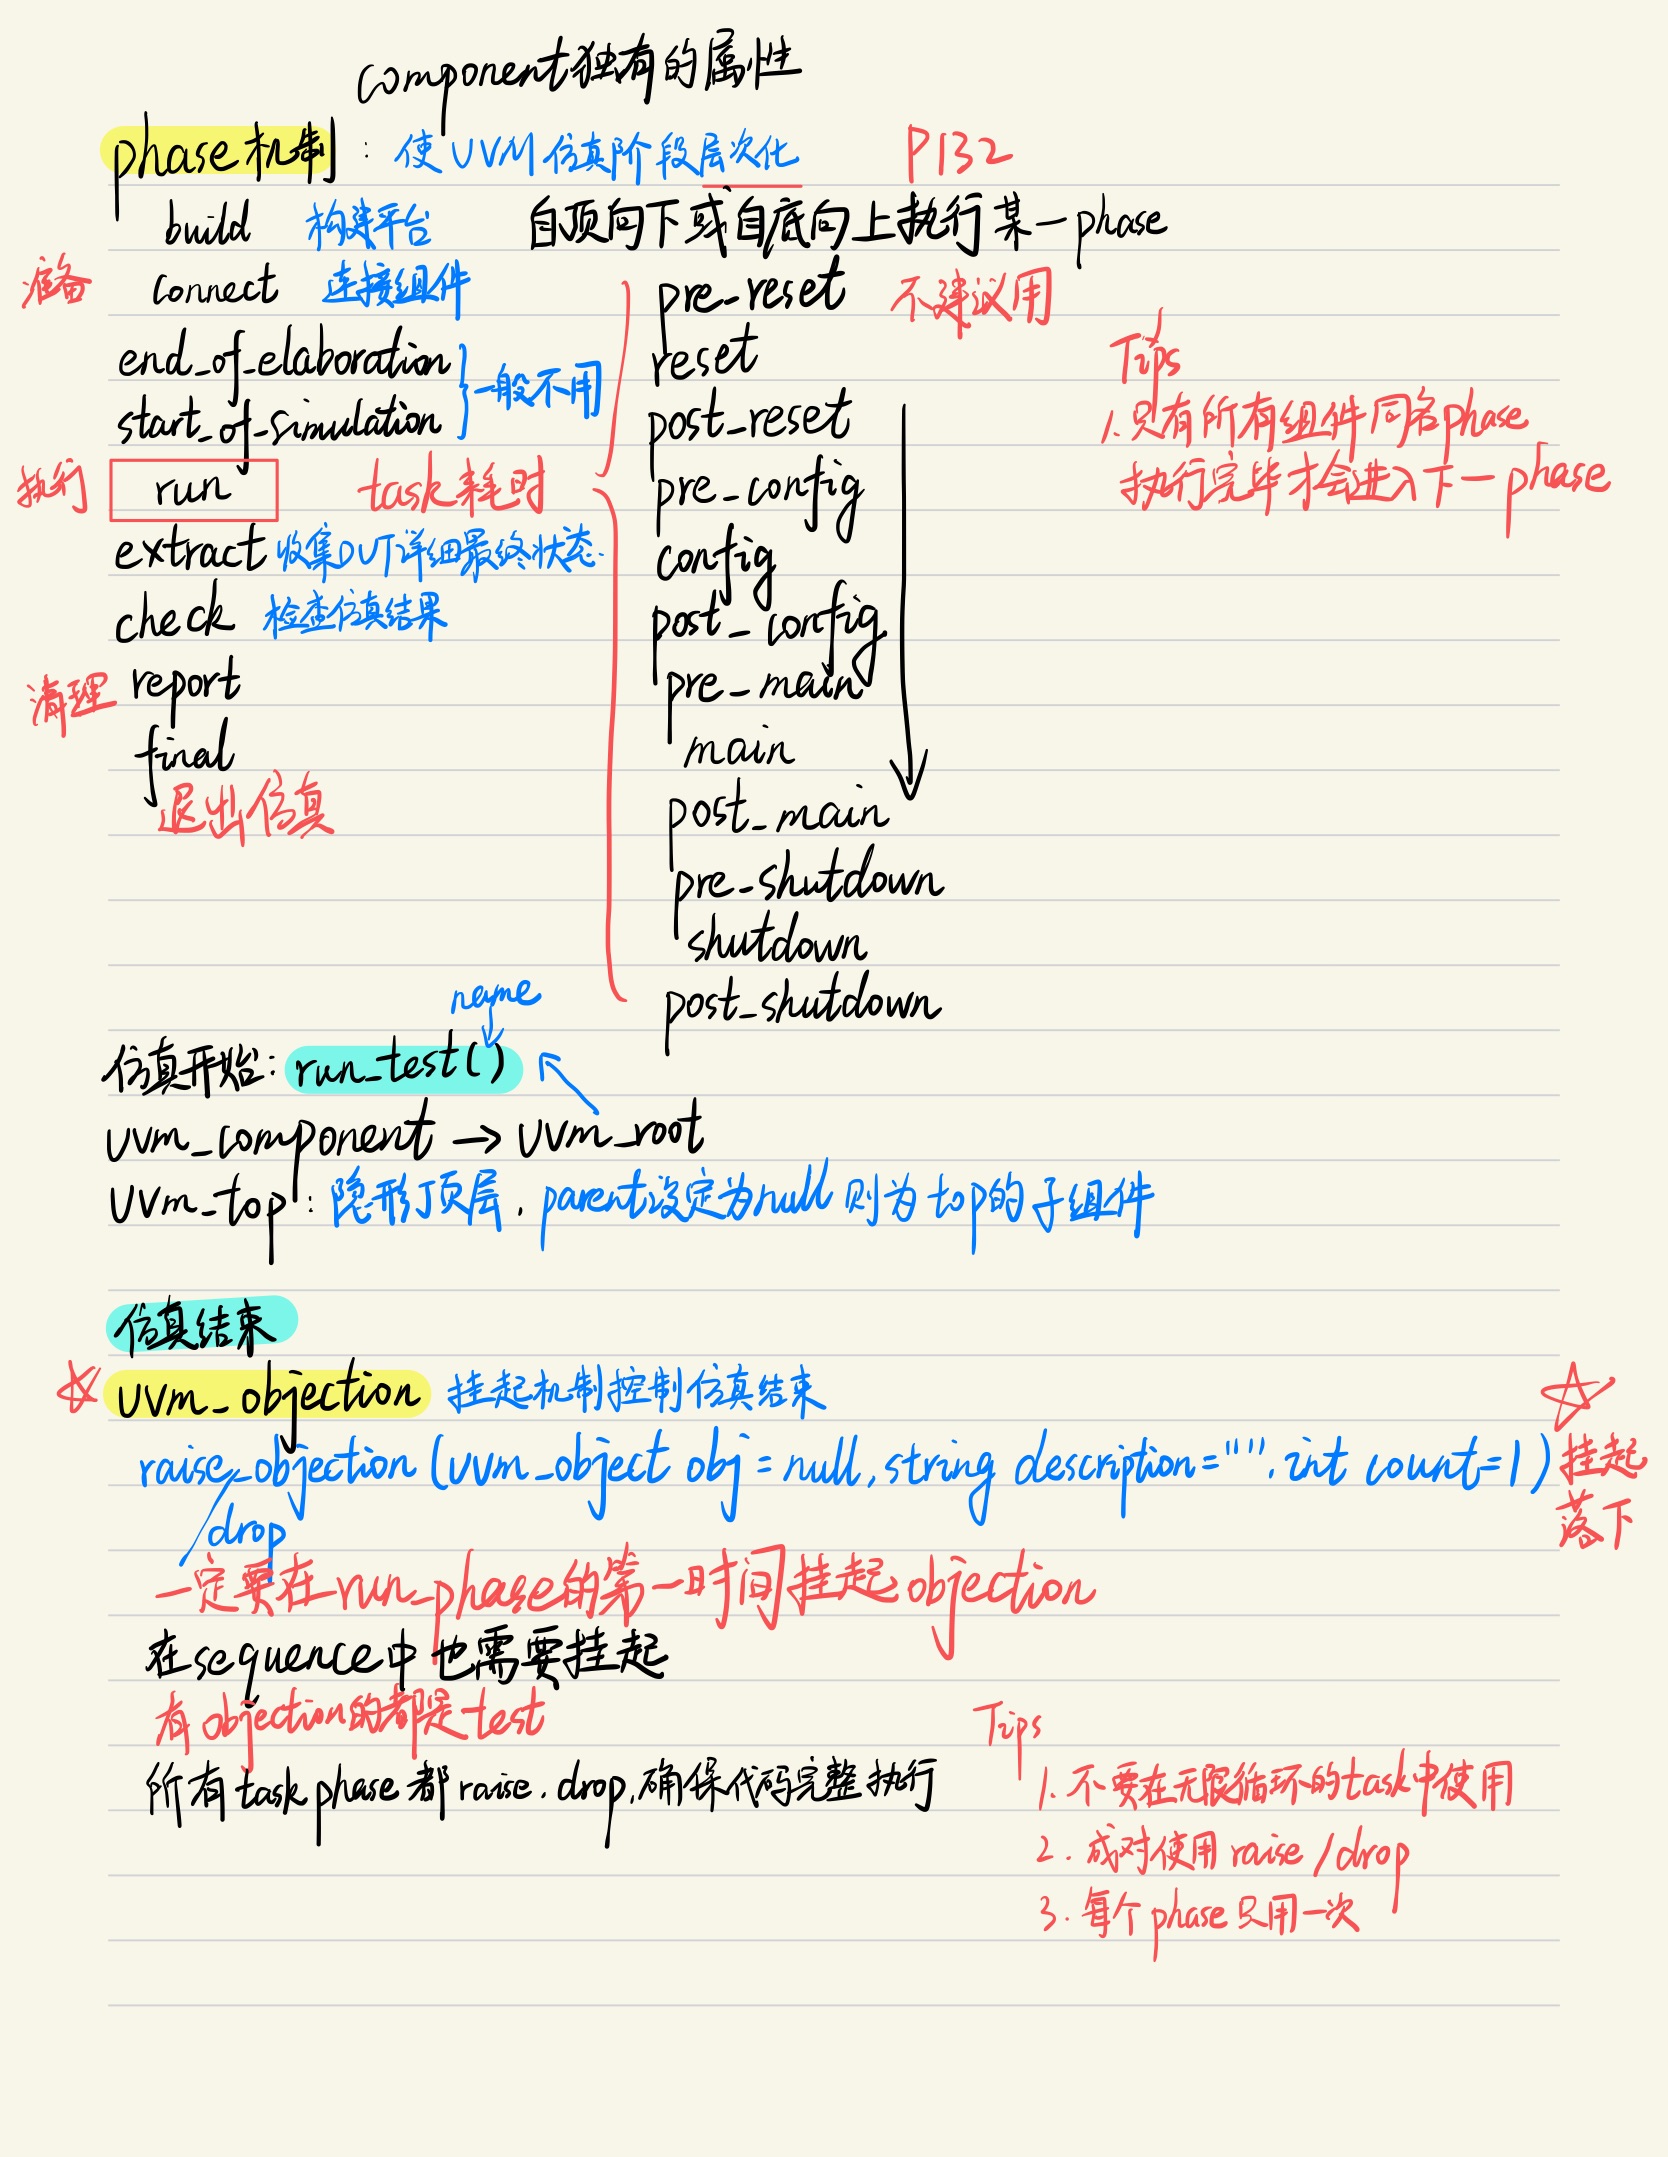 component独有的属性
phase机制 : 使UVM仿真阶段层次化 P132
build 构建平台 自顶向下或自底向上执行某一phase
准备 connect 连接组件
end_of_elaboration
start_of_simulation
一般不用
执行 run task耗时
extract 收集DUT详细最终状态.
check 检查仿真结果
清理 report
final
退出仿真
pre_reset 不建议用
reset
post_reset
pre_config
config
post_config
pre_main
main
post_main
pre_shutdown
shutdown
post_shutdown
Tips
1.只有所有组件同名phase
执行完毕才会进入下一phase
name
仿真开始: run_test()
uvm_component → uvm_root
uvm_top : 隐形顶层, parent设定为null则为top的子组件
仿真结束
☆ uvm_objection 挂起机制控制仿真结束 ☆
raise_objection (uvm_object obj = null, string description="", int count=1) 挂起
/drop 落下
一定要在run_phase的第一时间挂起objection
在sequence中也需要挂起
有objection的都是test
所有task phase都raise, drop,确保代码完整执行
Tips
1. 不要在无限循环的task中使用
2. 成对使用raise/drop
3. 每个phase只用一次